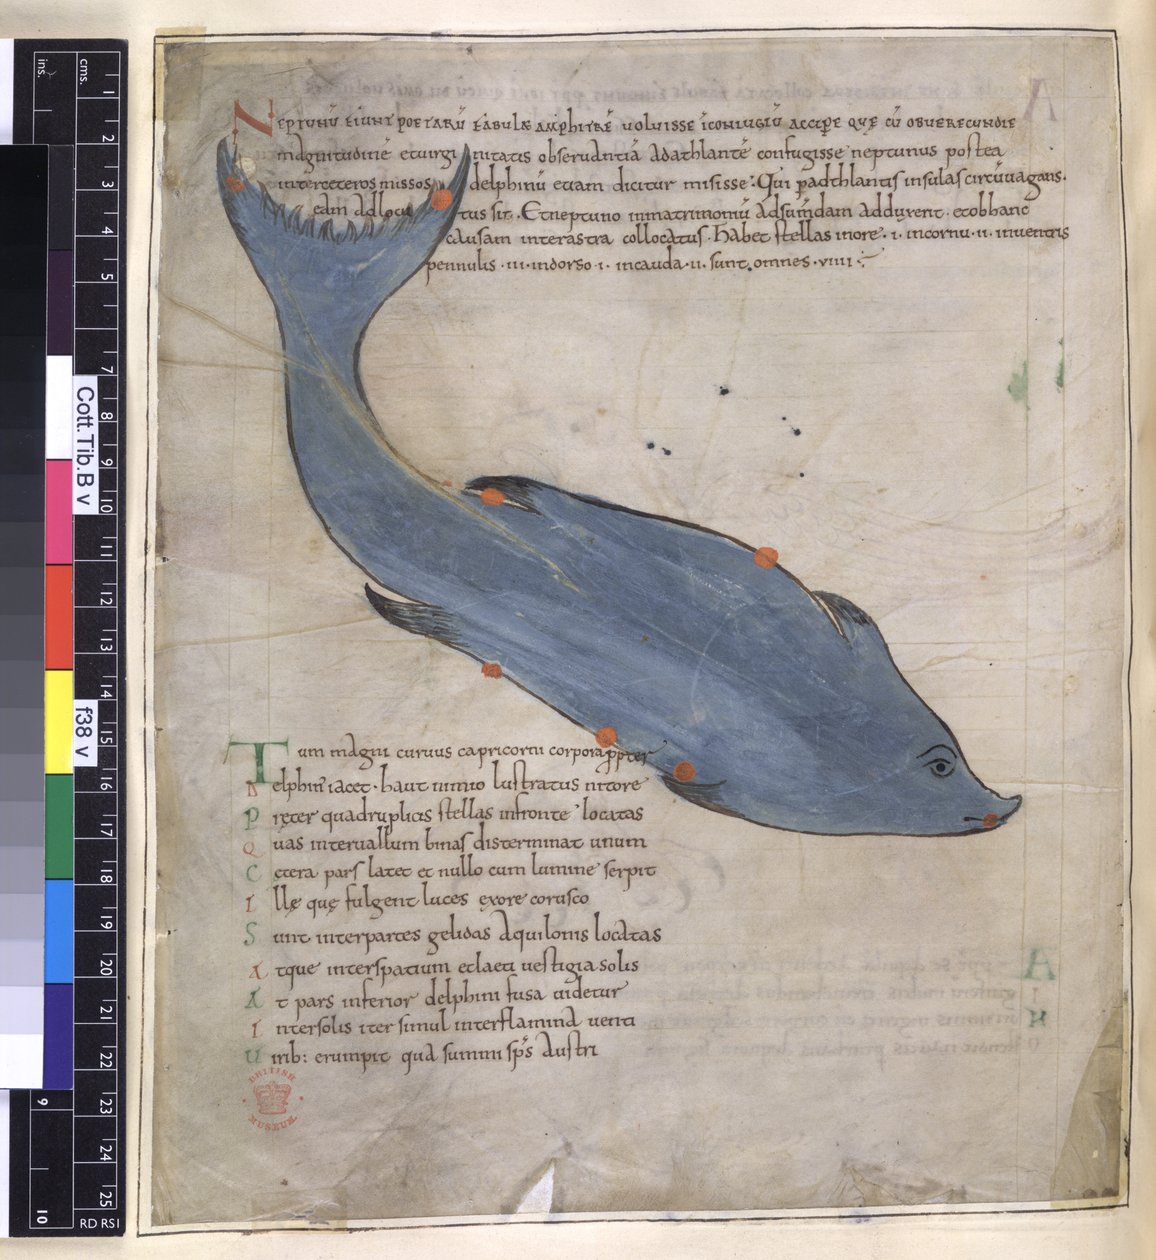 NEPTUNŪ FIUNT POETARŪ FABULÆ AMPHITRĒ UOLUISSE ĪCONIUGIŪ ACCIPE QUĘ CŪ OBUERECUNDIE
magnitudinē etuirginitatis obseruantiā adathlantē confugisse neptunus postea
interceteros missos delphinū etiam dicitur misisse: Qui padthlantis insulas circūuagans.
eam ad locutus sit. Etneptuno inmatrimoniū adsum̄dam adduxerit. etobhanc
causam interastra collocatus. habet stellas inore. i. incornu. ii. inuentris
pennulis. iii. indorso. i. incauda. ii. sunt. omnes. viiii.
Tum magni curuus capricorni corpora ppter
Delphin' iacet. haut nimio lustratus nitore
Pręter quadruplicis stellas infronte locatas
Quas interuallum binas disterminat unum
Cetera pars latet et nullo cum lumine serpit
Illę quę fulgent luces exore corusco
Sunt interpartes gelidas Aquilonis locatas
Atque interspatium etlaeti uestigia solis
At pars inferior delphini fusa uidetur
Intersolis iter simul interflamina uenti
Uirib: erumpit qua summi sp̄s Austri
BRITISH
MUSEUM
ins.
cms.
1
2
3
4
5
7
8
9
10
11
12
13
14
15
16
17
18
19
20
21
22
23
24
25
9
10
Cott.Tib.B v
f38 v
RD RS1